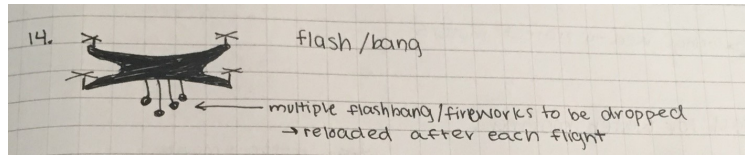 14.
flash/bang
multiple flashbang/fireworks to be dropped
→ reloaded after each flight